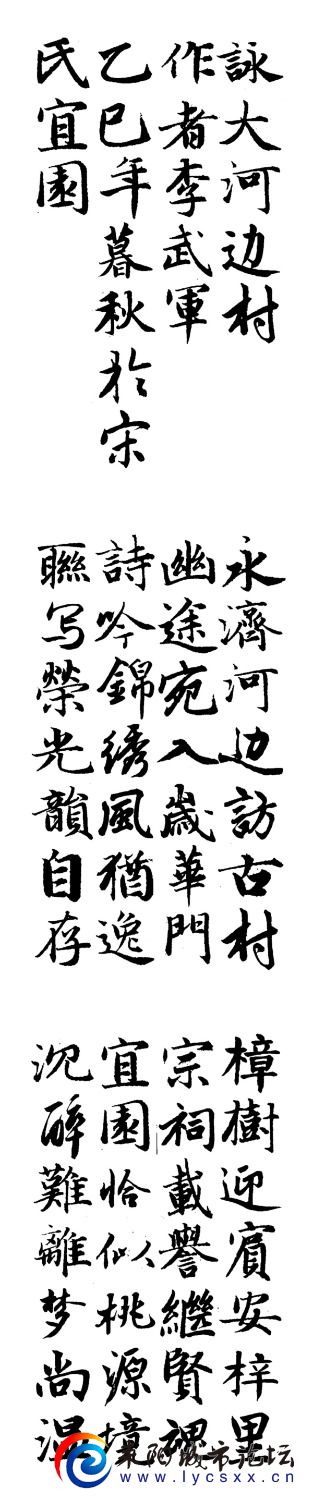 詠大河边村
作者李武軍
乙巳年暮秋於宋
氏宜園
永濟河边訪古村
幽途宛入歲華門
詩吟錦綉風猶逸
聯写榮光韻自存
樟樹迎賓安梓里
宗祠載譽繼賢魂
宜園恰似桃源境
沉醉難離梦尚温
莱阳城市论坛
www.lycsxx.cn